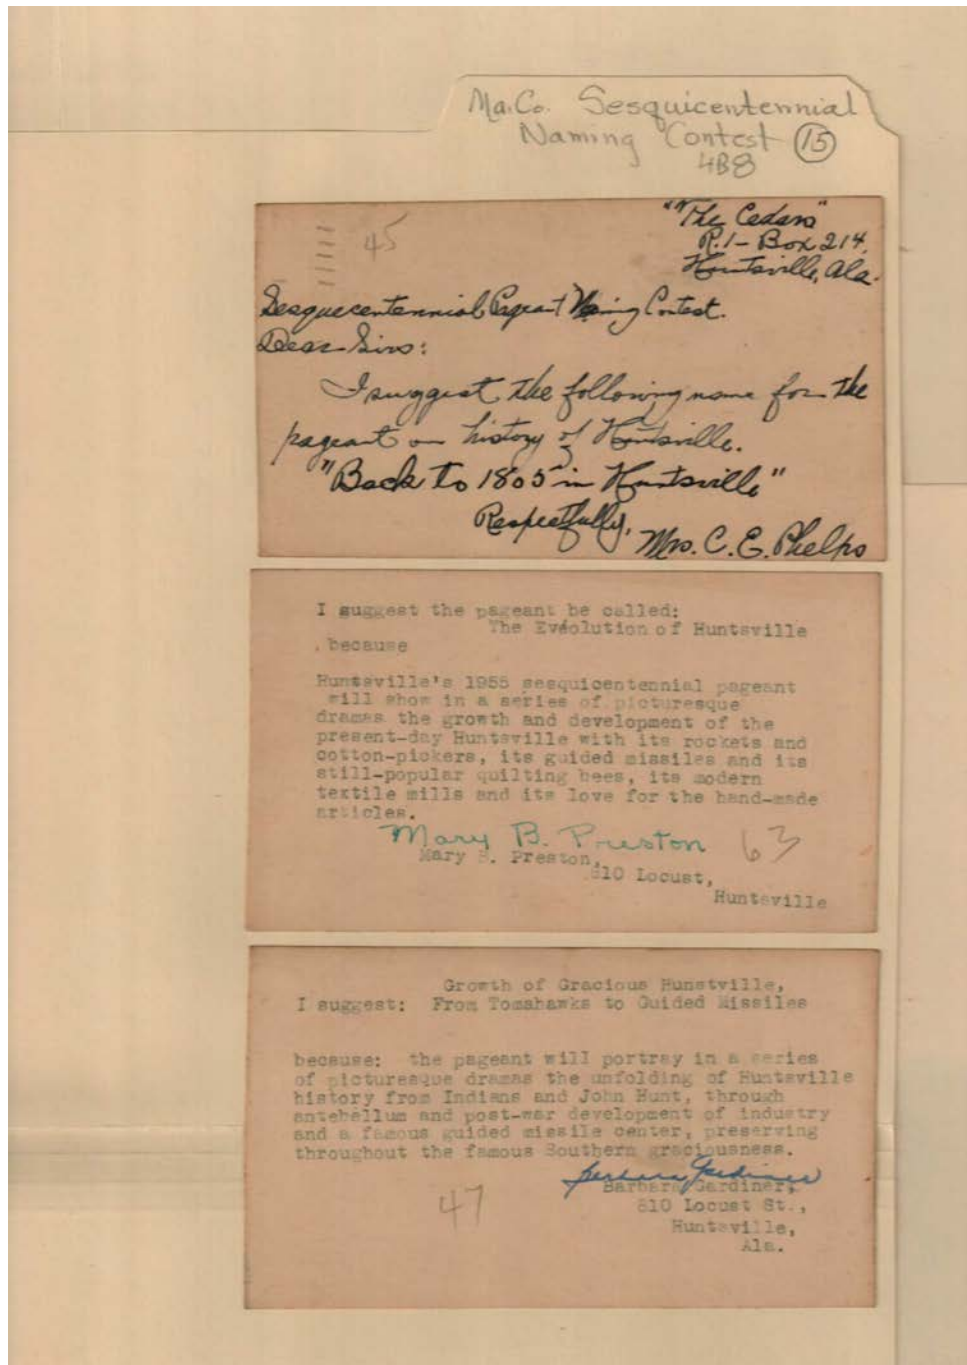 Ma. Co. Sesquicentennial
Naming Contest 15
4B8
45
"The Cedars"
R.1- Box 214,
Huntsville, Ala.
Sesquecentennial Pageant Naming Contest.
Dear Sirs:
I suggest the following name for the
pageant on history of Huntsville.
"Back to 1805 in Huntsville"
Respectfully,
Mrs. C. E. Phelps
I suggest the pageant be called:
The Evéolution of Huntsville
because
Huntsville's 1955 sesquicentennial pageant
will show in a series of picturesque
dramas the growth and development of the
present-day Huntsville with its rockets and
cotton-pickers, its guided missiles and its
still-popular quilting bees, its modern
textile mills and its love for the hand-made
articles.
Mary B. Preston 63
Mary B. Preston,
810 Locust,
Huntsville
Growth of Gracious Hunstville,
I suggest: From Tomahawks to Guided Missiles
because: the pageant will portray in a series
of picturesque dramas the unfolding of Huntsville
history from Indians and John Hunt, through
antebellum and post-war development of industry
and a famous guided missile center, preserving
throughout the famous Southern graciousness.
Barbara Gardiner
Barbara Gardiner,
810 Locust St.,
47
Huntsville,
Ala.